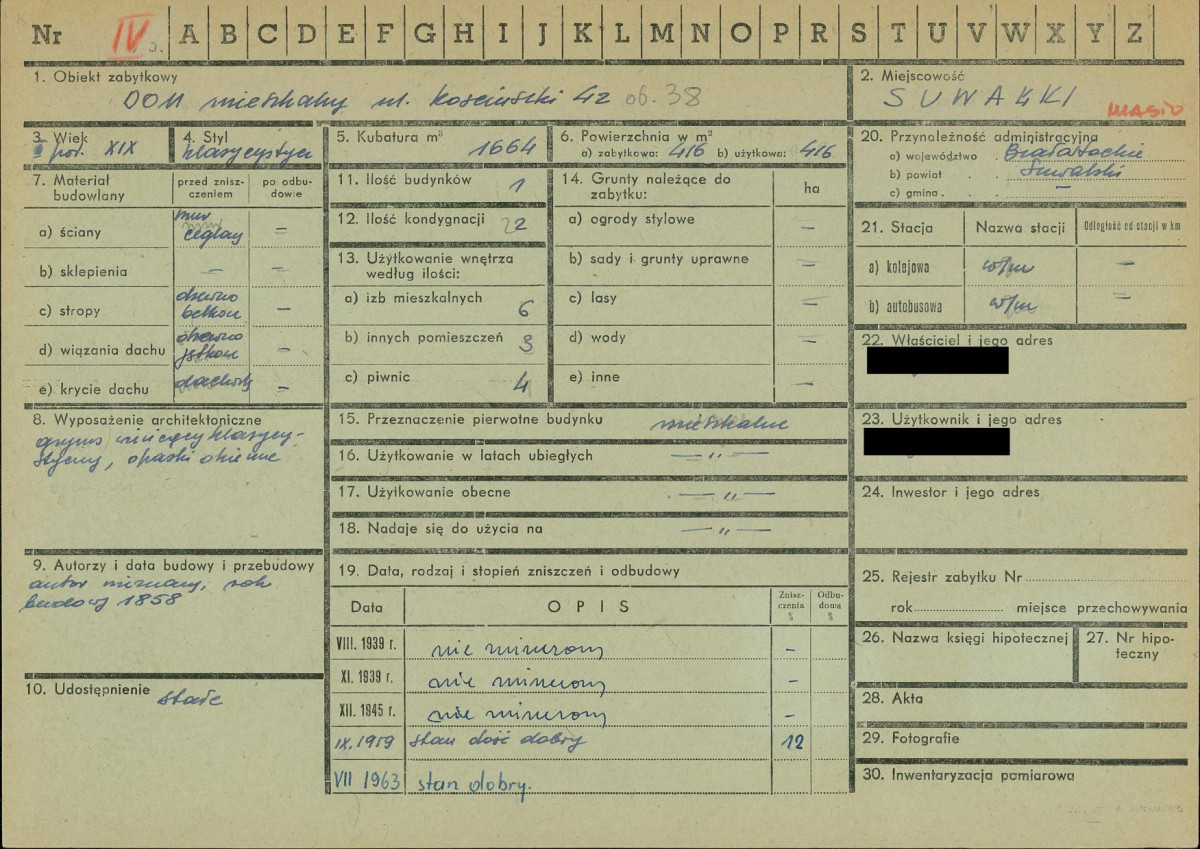 Nr IV A B C D E F G H I J K L M N O P R S T U V W X Y Z
1. Obiekt zabytkowy
DOM mieszkalny ul. Kościuszki 42 ob. 38
2. Miejscowość
SUWAŁKI
MIASTO
3. Wiek
poł. XIX
4. Styl
klasycystycz
5. Kubatura m³
1664
6. Powierzchnia w m³
a) zabytkowa: 416 b) użytkowa: 416
20. Przynależność administracyjna
a) województwo Białostockie
b) powiat Suwalski
c) gmina –
7. Materiał budowlany
przed zniszczeniem
po odbudowie
a) ściany mur ceglany –
b) sklepienia – –
c) stropy drewno belkow –
d) wiązania dachu drewno jętkow –
e) krycie dachu dachówk –
11. Ilość budynków 1
12. Ilość kondygnacji 2
13. Użytkowanie wnętrza
według ilości:
a) izb mieszkalnych 6
b) innych pomieszczeń 3
c) piwnic 4
14. Grunty należące do
zabytku:
ha
a) ogrody stylowe –
b) sady i grunty uprawne –
c) lasy –
d) wody –
e) inne –
21. Stacja Nazwa stacji Odległość od stacji w km
a) kolejowa w/m –
b) autobusowa w/m –
22. Właściciel i jego adres
23. Użytkownik i jego adres
8. Wyposażenie architektoniczne
gzyms wieńczący klasycy-
styczny, opaski okienne
15. Przeznaczenie pierwotne budynku mieszkalne
16. Użytkowanie w latach ubiegłych — „ —
17. Użytkowanie obecne — „ —
18. Nadaje się do użycia na — „ —
24. Inwestor i jego adres
9. Autorzy i data budowy i przebudowy
autor nieznany, rok
budowy 1858
10. Udostępnienie
stałe
19. Data, rodzaj i stopień zniszczeń i odbudowy
Data OPIS Zniszczenia % Odbudowa %
VIII. 1939 r. nie zniszczony –
XI. 1939 r. nie zniszczony –
XII. 1945 r. nie zniszczony –
IX. 1959 stan dość dobry 12
VII 1963 stan dobry.
25. Rejestr zabytku Nr
rok miejsce przechowywania
26. Nazwa księgi hipotecznej
27. Nr hipo-
teczny
28. Akta
29. Fotografie
30. Inwentaryzacja pomiarowa